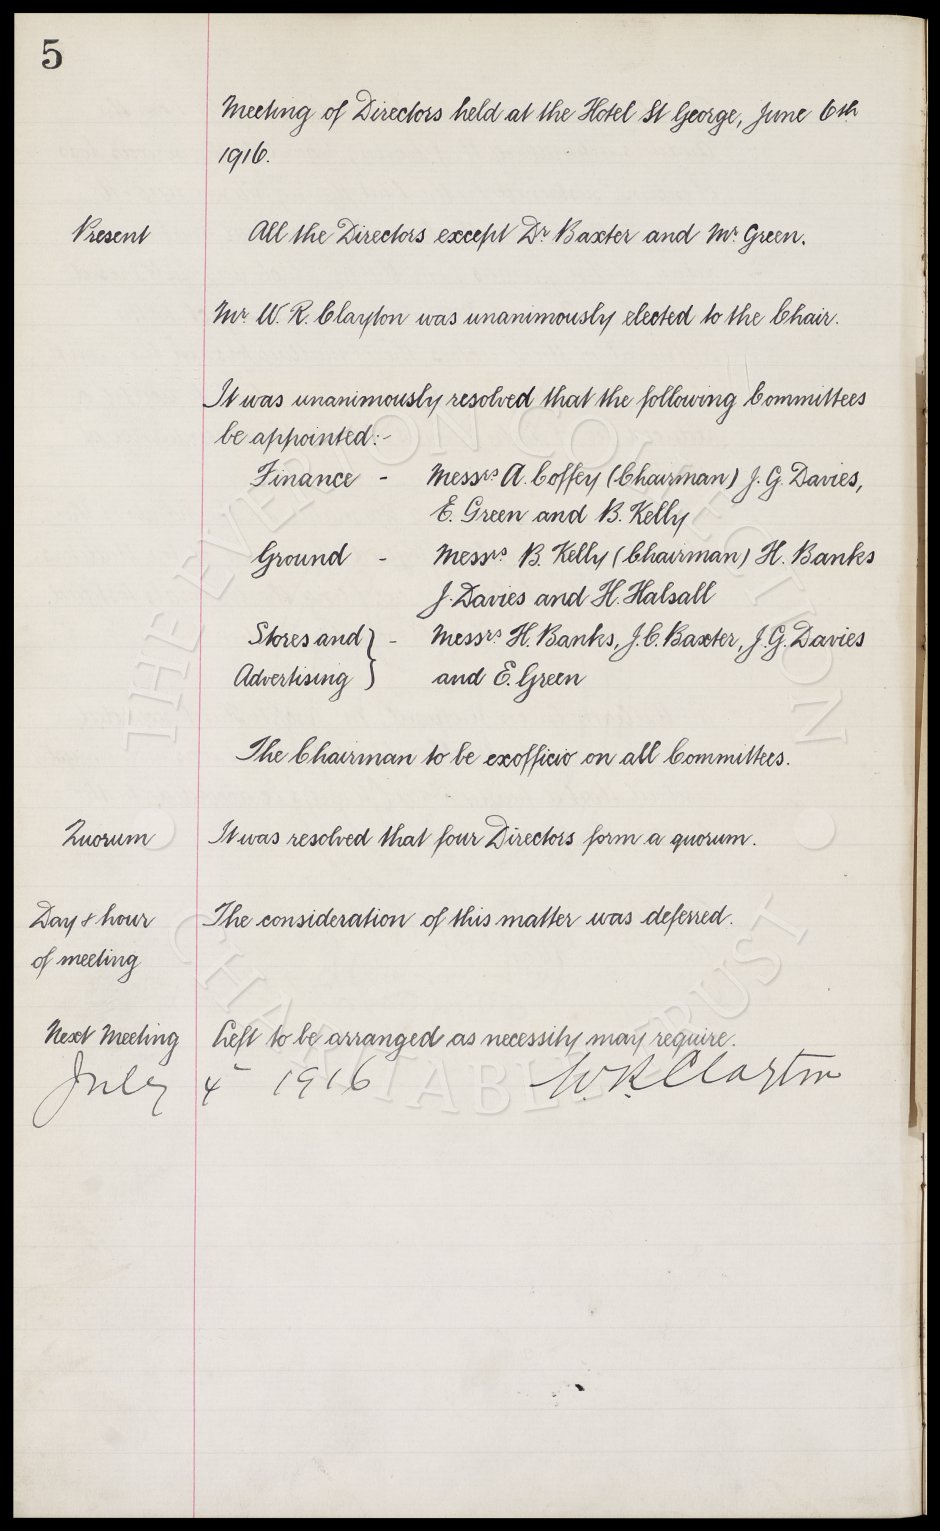 5
Meeting of Directors held at the Hotel St George, June 6th
1916.
Present All the Directors except Dr Baxter and Mr Green.
Mr. W. R. Clayton was unanimously elected to the Chair.
It was unanimously resolved that the following Committees
be appointed:-
Finance - Messrs A. Coffey (Chairman) J. G. Davies,
E. Green and B. Kelly
Ground - Messrs B. Kelly (Chairman) H. Banks
J. Davies and H. Halsall
Stores and } - Messrs H. Banks, J. C. Baxter, J. G. Davies
Advertising } and E. Green
The Chairman to be exofficio on all Committees.
Quorum It was resolved that four Directors form a quorum.
Day & hour The consideration of this matter was deferred.
of meeting
Next Meeting Left to be arranged as necessity may require.
July 4 1916 W. R. Clayton
THE EVERTON COLLECTION
CHARITABLE TRUST